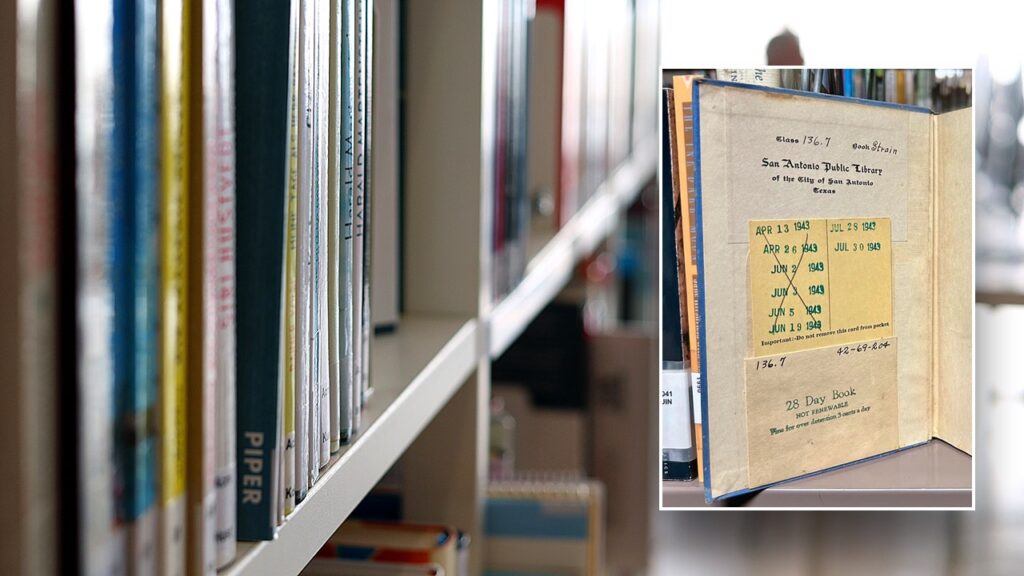 PIPER
HARALD MARTEN
Class 136.7 Book Strain
San Antonio Public Library
of the City of San Antonio
Texas
APR 13 1943 JUL 28 1943
APR 26 1943 JUL 30 1943
JUN 2 1943
JUN 3 1943
JUN 5 1943
JUN 19 1943
Important:-Do not remove this card from pocket
136.7 42-69-204
28 Day Book
NOT RENEWABLE
Fine for over detention 3 cents a day